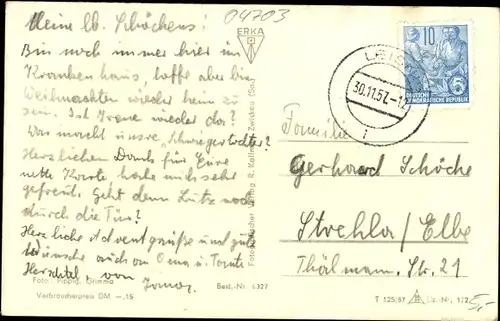 04703
Meine lb. Schöchens!
Bin noch immer hier im
Krankenhaus, hoffe aber bis
Weihnachten wieder heim zu
sein. Ist Irene wieder da?
Was macht unsre "Schwiegertochter?
Herzlichen Dank für Eure
nette Karte habe mich sehr
gefreut. Geht denn Lutz noch
durch die Tür?
Herzliche Adventgrüße und gute
Wünsche auch an Oma u. Tante
von
Foto: Grimma
Verbraucherpreis DM -.15
Best.-Nr. 6327
ERKA
Verlag R. Zwickau (Sa.)
LEIS
30.11.57.-1
10
DEUTSCHE
DEMOKRATISCHE REPUBLIK
5
Familie
Gerhard Schöche
Strehla/Elbe
Thälmann-Str. 21
T 125/57
Liz.-Nr. 172
5,-